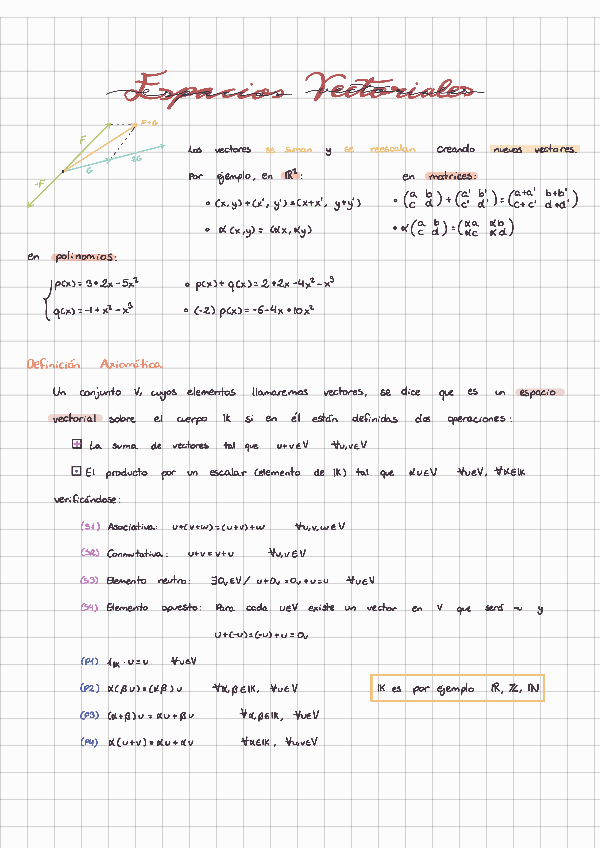 Espacios Vectoriales
F
F+G
G
2G
-F
Los vectores se suman y se reescalan creando nuevos vectores.
Por ejemplo, en ℝ²:
• (x,y)+(x',y')=(x+x', y+y')
• α(x,y) = (αx,αy)
en matrices:
• (a b; c d) + (a' b'; c' d') = (a+a' b+b'; c+c' d+d')
• α(a b; c d) = (αa αb; αc αd)
en polinomios:
p(x)= 3+2x-5x²
q(x)= -1+x²-x³
• p(x)+q(x)= 2+2x-4x²-x³
• (-2) p(x)= -6-4x+10x²
Definición Axiomática
Un conjunto V, cuyos elementos llamaremos vectores, se dice que es un espacio
vectorial sobre el cuerpo 𝕂 si en él están definidas dos operaciones:
+ La suma de vectores tal que u+v∈V ∀u,v∈V
· El producto por un escalar (elemento de 𝕂) tal que αu∈V ∀u∈V, ∀α∈𝕂
verificándose:
(S1) Asociativa: u+(v+w)=(u+v)+w ∀u,v,w∈V
(S2) Conmutativa: u+v=v+u ∀u,v∈V
(S3) Elemento neutro: ∃0ᵥ∈V/ u+0ᵥ=0ᵥ+u=u ∀u∈V
(S4) Elemento opuesto: Para cada u∈V existe un vector en V que será -u y
u+(-u)=(-u)+u=0ᵥ
(P1) 1𝕂·u=u ∀u∈V
(P2) α(βu)=(αβ)u ∀α,β∈𝕂, ∀u∈V
𝕂 es por ejemplo ℝ, ℤ, ℕ
(P3) (α+β)u=αu+βu ∀α,β∈𝕂, ∀u∈V
(P4) α(u+v)=αu+αv ∀α∈𝕂, ∀u,v∈V